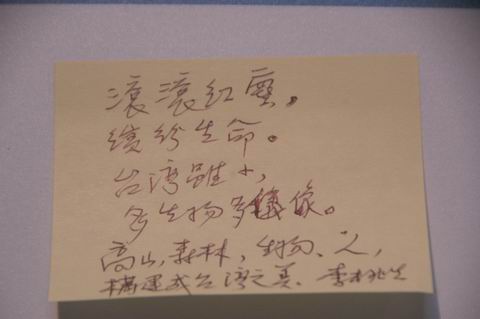 滾滾紅塵。
繽紛生命。
台灣雖小,
多生物多樣像。
高山,森林,生物、人,
構運成台灣之美、李桃生